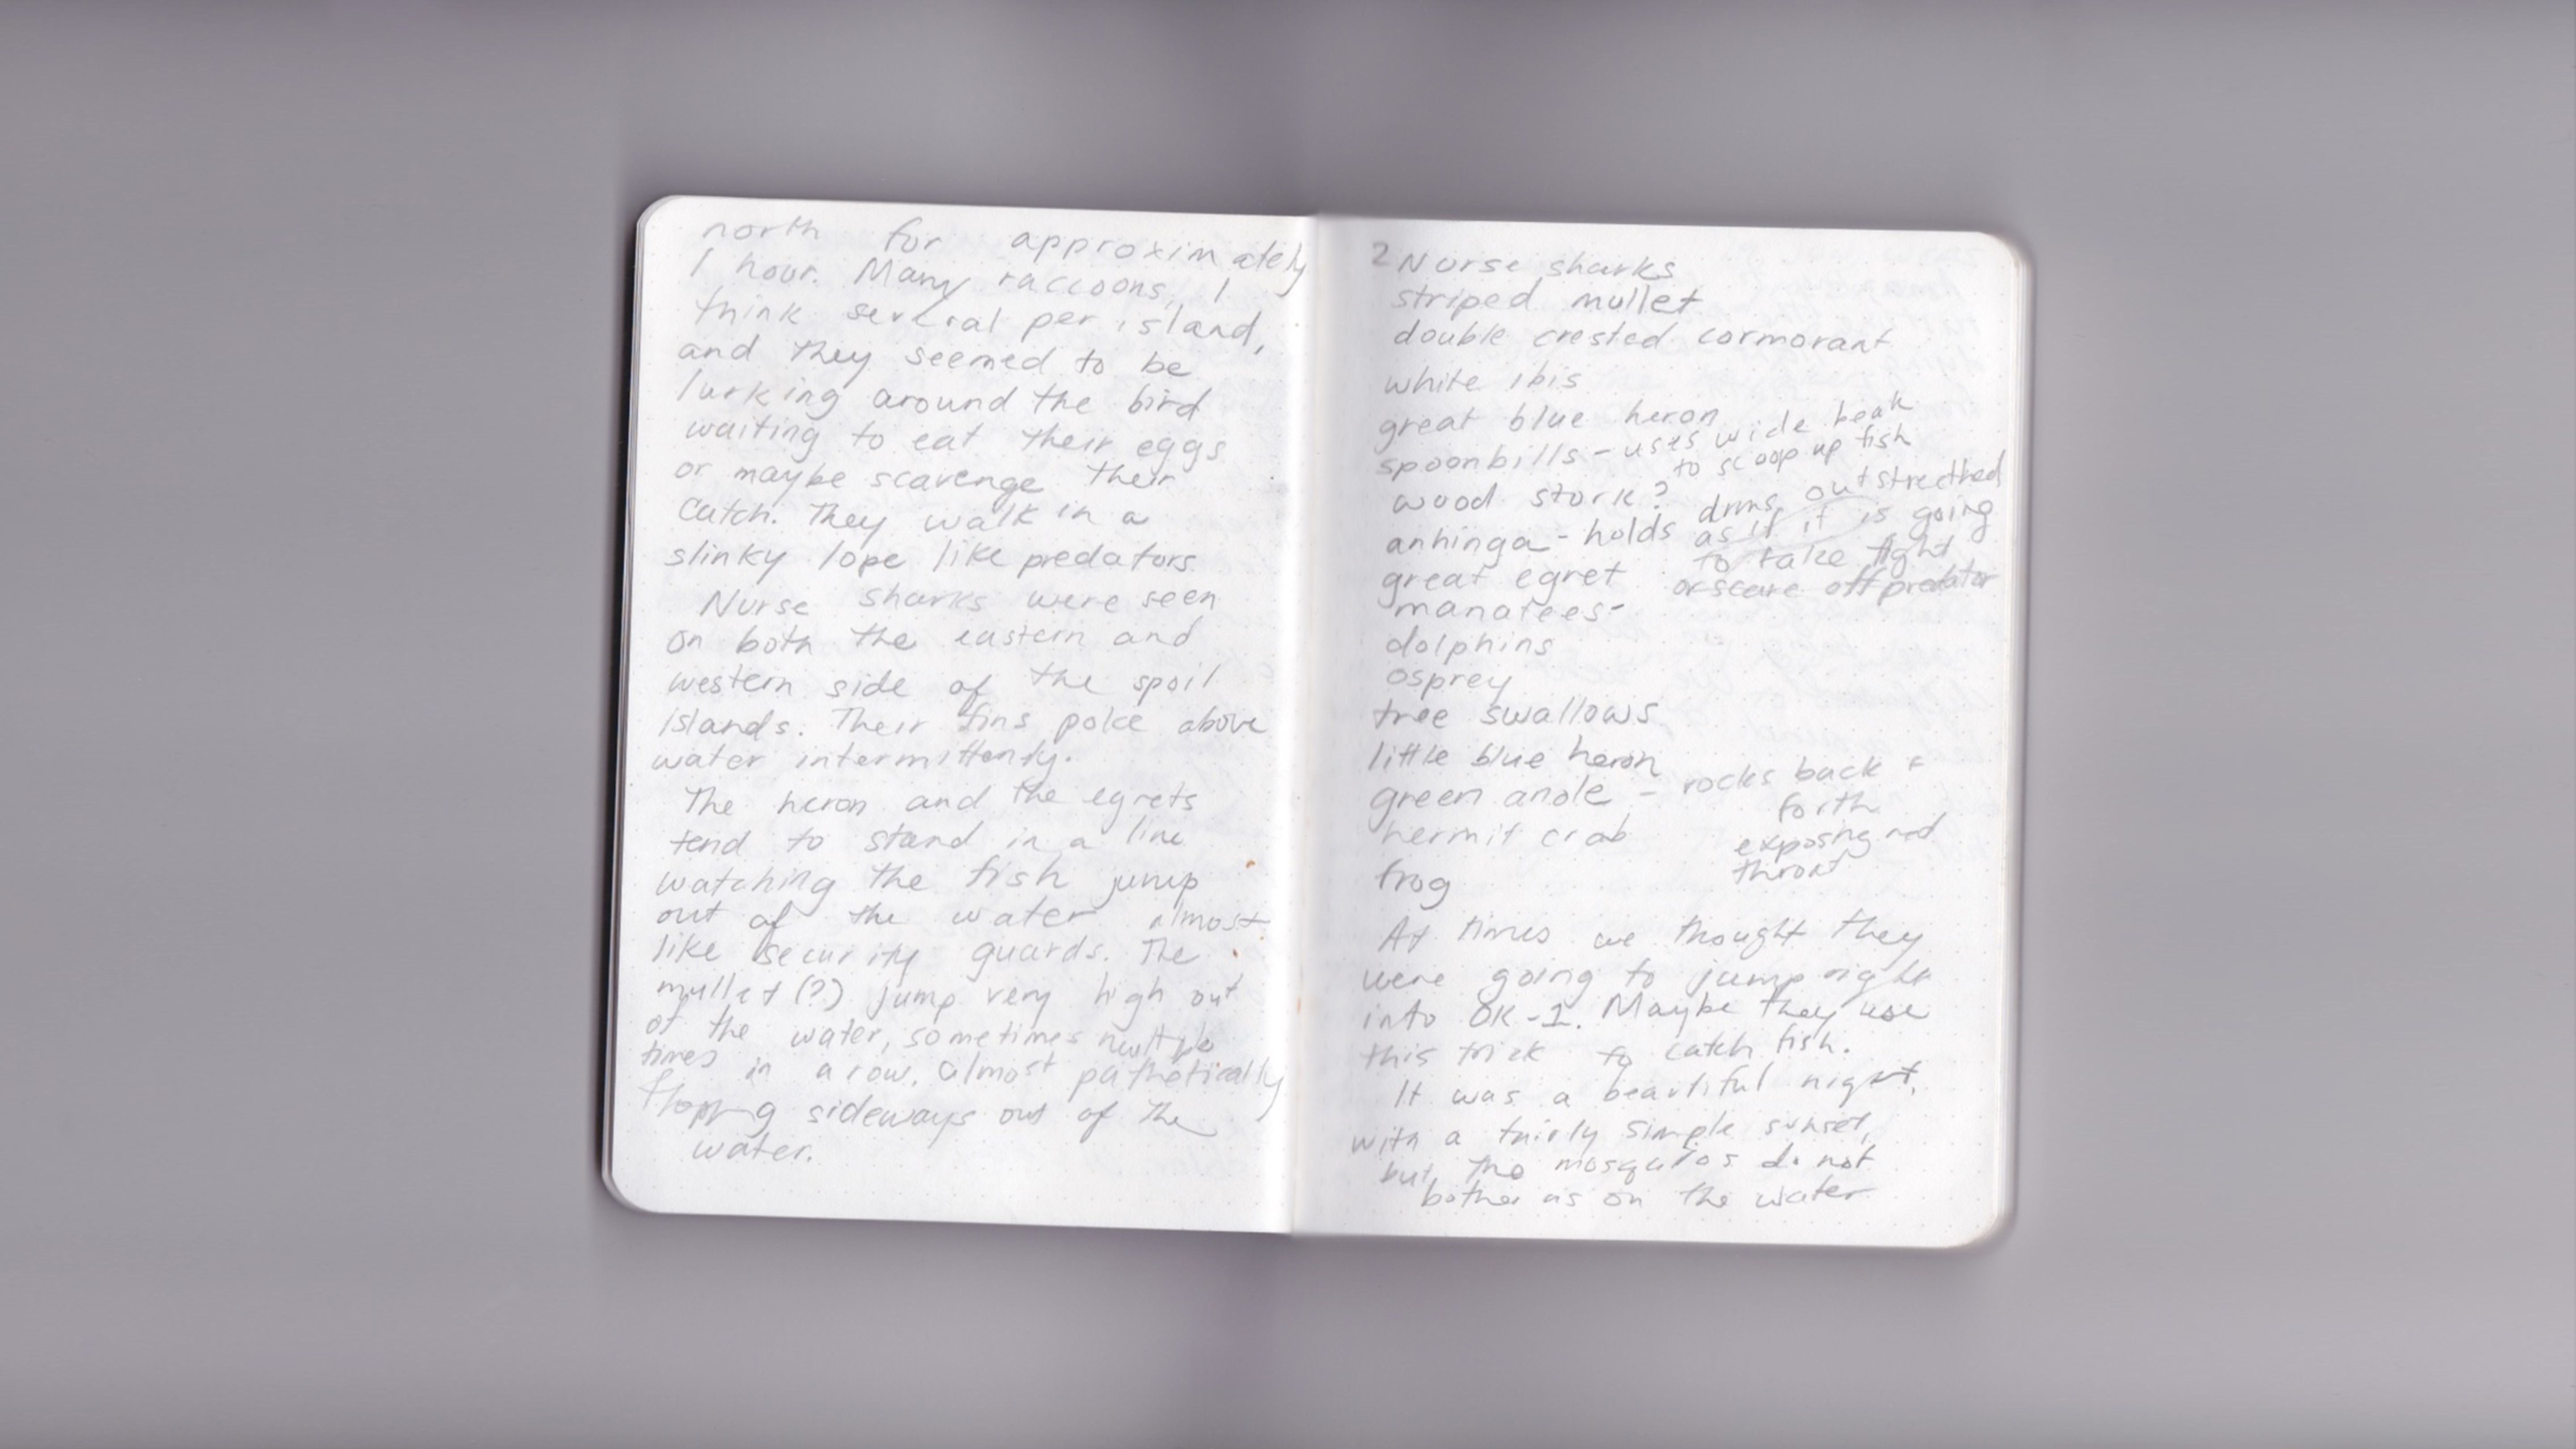 north for approximately
1 hour. Many raccoons, I
think several per island,
and they seemed to be
lurking around the bird
waiting to eat their eggs
or maybe scavenge their
catch. They walk in a
slinky lope like predators
Nurse sharks were seen
on both the eastern and
western side of the spoil
islands. Their fins poke above
water intermittenly.
The heron and the egrets
tend to stand in a line
watching the fish jump
out of the water almost
like security guards. The
mullet (?) jump very high out
of the water, sometimes multiple
times in a row. almost pathetically
flopping sideways out of the
water.
2 Nurse sharks
striped mullet
double crested cormorant
white ibis
great blue heron
spoonbills - uses wide beak
to scoop up fish
wood stork?
anhinga - holds arms outstretched
as if it is going
to take flght
or scare off predator
great egret
manatees-
dolphins
osprey
tree swallows
little blue heron
green anole - rocks back +
forth
exposing red
throat
hermit crab
frog
At times we thought they
were going to jump right
into OK-1. Maybe they use
this trick to catch fish.
It was a beautiful night,
with a fairly simple sunset,
but the mosquitos do not
bother us on the water